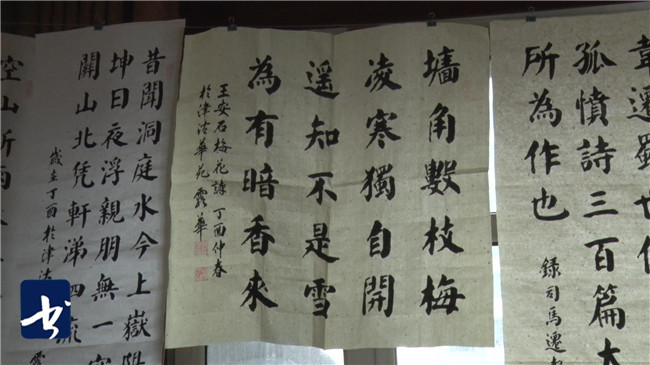 韋遷蜀世
孤憤詩三百篇大
所為作也
錄司馬遷報
墙角數枝梅
凌寒獨自開
遥知不是雪
為有暗香來
王安石梅花詩 丁酉仲春
於津沽華苑
昔聞洞庭水今上嶽陽
坤日夜浮親朋無一字
關山北凭軒涕四流
歲在丁酉於津沽
空山新雨
书